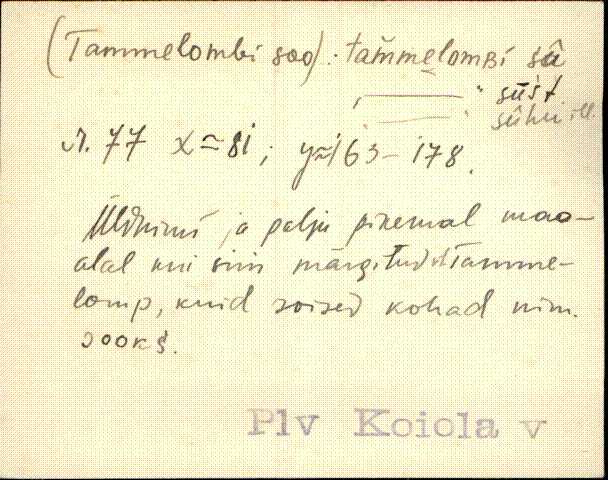 (Tammelombi soo): tam̆mẹlomʙi sū̂
" sūst
sūhu ill.
A. 77 x≈81; y≈163–178.
Üldnimi ja palju pikemal maa-
alal kui siin märgitud Tamme-
lomp, kuid soised kohad nim.
sooks.
Plv Koiola v